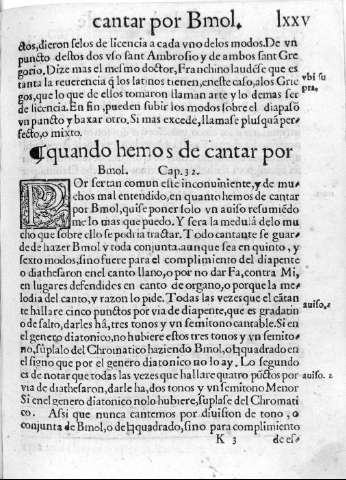 cantar por Bmol. lxxv
ctos, dieron selos de licencia a cada vno delos modos. De vn
puncto destos dos vso sant Ambrosio y de ambos sant Gre
gorio. Dize mas el mesmo doctor, Franchino laudése que es
tanta la reuerencia q̃ los latinos tienen, en este caso, a los Grie
gos, que lo que de ellos tomaron llaman arte y lo demas ser
de licencia. En fin, pueden subir los modos sobre el diapasõ
vn puncto y baxar otro, Si mas excede, llamase plusquã per-
fecto, o mixto.
vbi su
pra.
¶quando hemos de cantar por
Bmol. Cap. 32.
POr ser tan comun este inconuiniente, y de mu
chos mal entendido, en quanto hemos de cantar
por Bmol, quise poner solo vn auiso resumiẽdo
me lo mas que puedo. Y sera la medula delo mu
cho que sobre ello se podria tractar. Todo cantante se guar
de de hazer Bmol y toda conjunta. aunque sea en quinto, y
sexto modos, sino fuere para el complimiento del diapente
o diathesaron en el canto llano, o por no dar Fa, contra Mi,
en lugares defendidos en canto de organo, o porque la me-
lodia del canto, y razon lo pide. Todas las vezes que el cãtan
te hallare cinco punctos por via de diapente, que es gradatin
o de salto, darles há, tres tonos y vn semitono cantable. Si en
el genero diatonico, no hubiere estos tres tonos y vn semito-
no, suplalo del Chromatico haziendo Bmol, o ♮quadrado en
el signo que por el genero diatonico no lo ay. Lo segundo
es de notar que todas las vezes que hallare quatro pũctos por
via de diathesaron, darle ha, dos tonos y vn semitono Menor
Si en el genero diatonico nolo hubiere, suplase del Chromati
co. Assi que nunca cantemos por diuision de tono, o
conjunta de Bmol, o de ♮quadrado, sino para complimiento
auiso.
auiso. 2
K 3 de es-